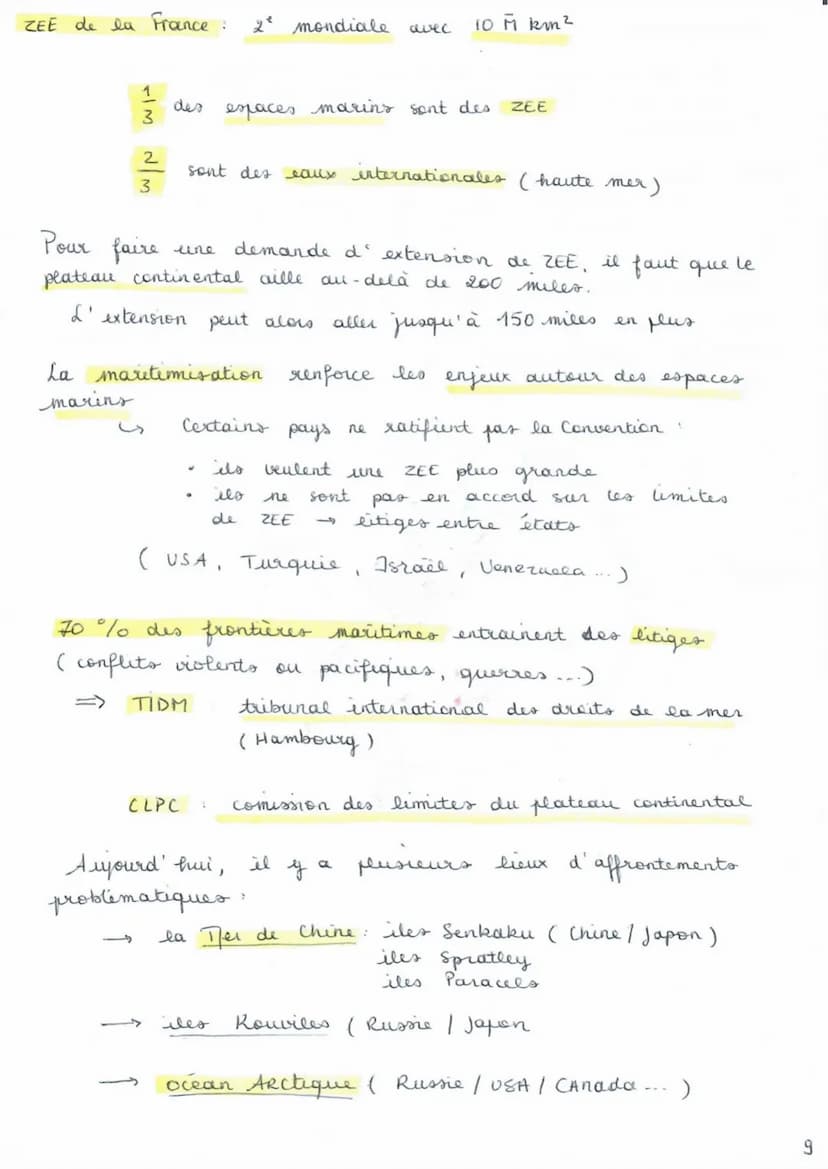 ZEE de la France : 2e mondiale avec 10 M km²
1/3 des espaces marins sont des ZEE
2/3 sont des eaux internationales (haute mer)
Pour faire une demande d'extension de ZEE, il faut que le
plateau continental aille au-delà de 200 miles.
L'extension peut alors aller jusqu'à 150 miles en plus
La maritimisation renforce les enjeux autour des espaces
marins
↳ Certains pays ne ratifient pas la Convention :
• ils veulent une ZEE plus grande
• ils ne sont pas en accord sur les limites
de ZEE → litiges entre états
(USA, Turquie, Israël, Venezuela ...)
70 % des frontières maritimes entrainent des litiges
(conflits violents ou pacifiques, guerres ...)
=> TIDM tribunal international des droits de la mer
(Hambourg)
CLPC : comission des limites du plateau continental
Aujourd'hui, il y a plusieurs lieux d'affrontements
problématiques :
→ la Mer de Chine : iles Senkaku (Chine / Japon)
iles Spratley
iles Paracels
→ iles Kouriles (Russie / Japon
→ océan Arctique (Russie / USA / Canada ... )
9